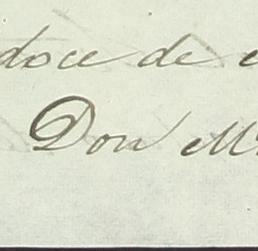 doce de
Don